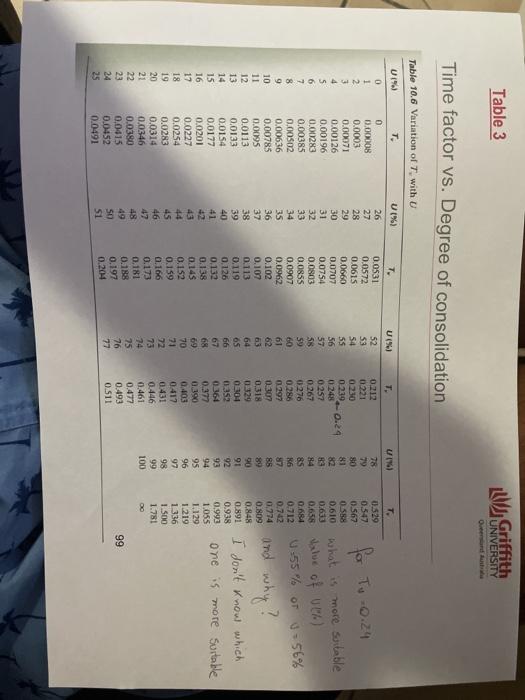 Table 3
Griffith
UNIVERSITY
Queensland Australia
Time factor vs. Degree of consolidation
Table 10.6 Variation of Tv with U
U(%) Tv U(%) Tv U(%) Tv U(%) Tv
0 0 26 0.0531 52 0.212 78 0.529
1 0.00008 27 0.0572 53 0.221 79 0.547
2 0.0003 28 0.0615 54 0.230 80 0.567
3 0.00071 29 0.0660 55 0.239 ← 0.24 81 0.588
4 0.00126 30 0.0707 56 0.248 82 0.610
5 0.00196 31 0.0754 57 0.257 83 0.633
6 0.00283 32 0.0803 58 0.267 84 0.658
7 0.00385 33 0.0855 59 0.276 85 0.684
8 0.00502 34 0.0907 60 0.286 86 0.712
9 0.00636 35 0.0962 61 0.297 87 0.742
10 0.00785 36 0.102 62 0.307 88 0.774
11 0.0095 37 0.107 63 0.318 89 0.809
12 0.0113 38 0.113 64 0.329 90 0.848
13 0.0133 39 0.119 65 0.304 91 0.891
14 0.0154 40 0.126 66 0.352 92 0.938
15 0.0177 41 0.132 67 0.364 93 0.993
16 0.0201 42 0.138 68 0.377 94 1.055
17 0.0227 43 0.145 69 0.390 95 1.129
18 0.0254 44 0.152 70 0.403 96 1.219
19 0.0283 45 0.159 71 0.417 97 1.336
20 0.0314 46 0.166 72 0.431 98 1.500
21 0.0346 47 0.173 73 0.446 99 1.781
22 0.0380 48 0.181 74 0.461 100 ∞
23 0.0415 49 0.188 75 0.477
24 0.0452 50 0.197 76 0.493
25 0.0491 51 0.204 77 0.511
99
for Tv = 0.24
what is more suitable
value of U(%)
U=55% or U=56%
and why?
I don't know which
one is more suitable